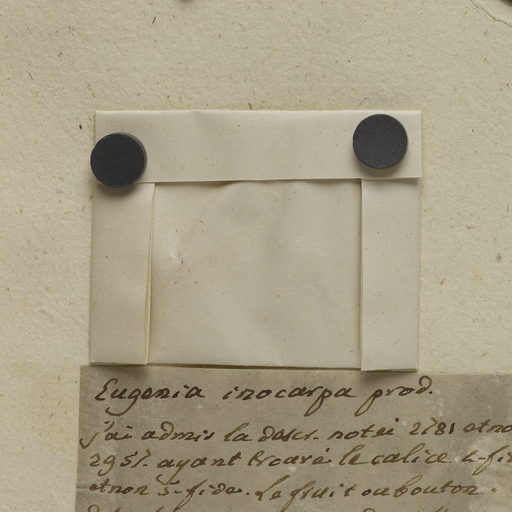 Eugenia inocarpa prod.
j'ai admis la descr. notée 2781 et no
2957. ayant trouvé le calice 4-fi
et non 5-fide. Le fruit ou bouton